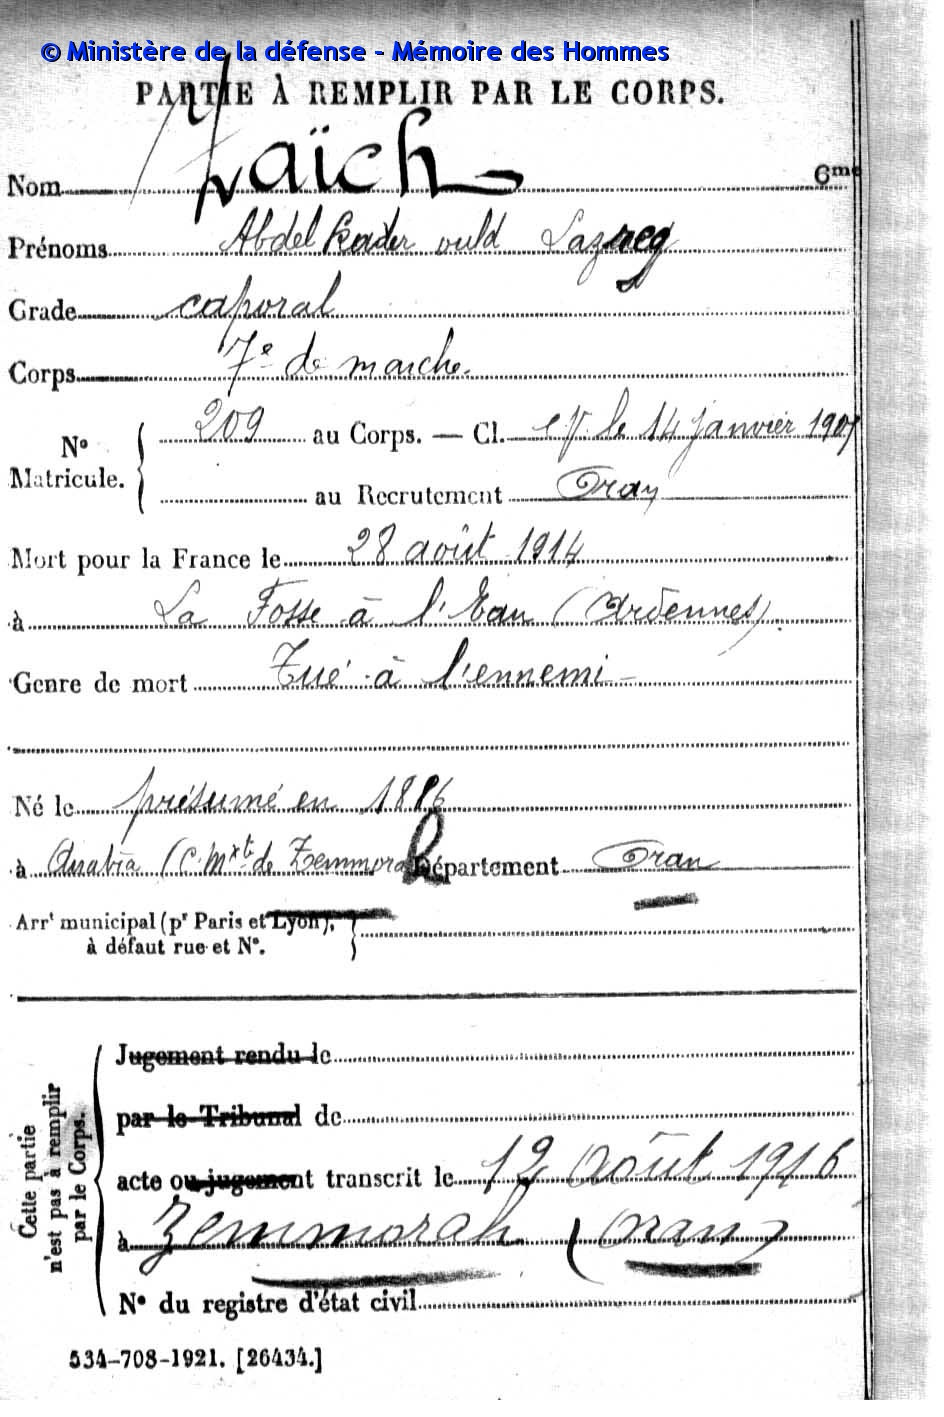 © Ministère de la défense - Mémoire des Hommes
PARTIE À REMPLIR PAR LE CORPS.
Nom Laïch 6me
Prénoms Abdel Kader ould Lazreg
Grade caporal
Corps 7e de marche.
No Matricule. 209 au Corps. — Cl. ev le 14 janvier 1907
au Recrutement Oran
Mort pour la France le 28 août 1914
à La Fosse à l'Eau (Ardennes).
Genre de mort Tué à l'ennemi
Né le présumé en 1886
à (C. Mxte de Zemmora) Département Oran
Arrt municipal (pr Paris et Lyon),
à défaut rue et No.
Cette partie n'est pas à remplir par le Corps.
Jugement rendu le
par le Tribunal de
acte ou jugement transcrit le 12 Août 1916
à Zemmorah (Oran)
No du registre d'état civil
534-708-1921. [26434.]